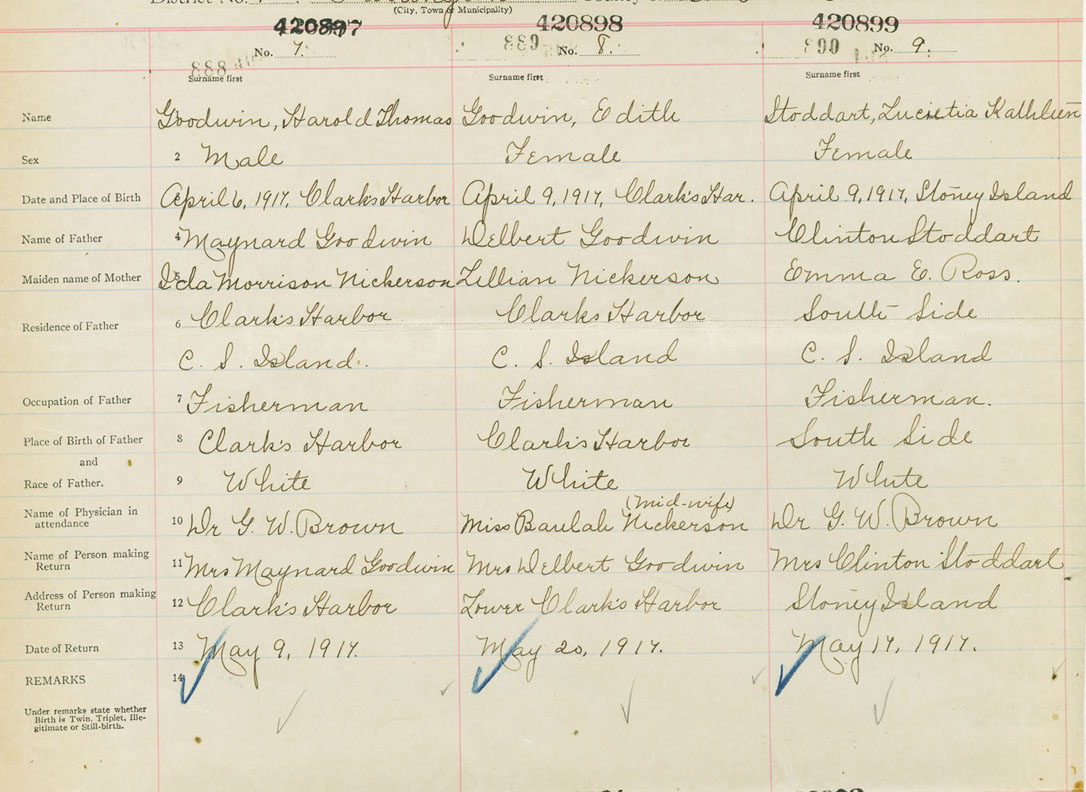 District No.
(City, Town or Municipality)
420897 420898 420899
888 889 890
No. 7. No. 8. No. 9.
Surname first Surname first Surname first
Name Goodwin, Harold Thomas Goodwin, Edith Stoddart, Lucretia Kathleen
Sex 2 Male Female Female
Date and Place of Birth April 6, 1917, Clark's Harbor April 9, 1917, Clark's Har. April 9, 1917, Stoney Island
Name of Father 4 Maynard Goodwin Delbert Goodwin Clinton Stoddart
Maiden name of Mother 5 Ida Morrison Nickerson Lillian Nickerson Emma E. Ross.
Residence of Father 6 Clark's Harbor Clark's Harbor South Side
C. S. Island. C. S. Island C. S. Island
Occupation of Father 7 Fisherman Fisherman Fisherman.
Place of Birth of Father 8 Clark's Harbor Clark's Harbor South Side
and
Race of Father. 9 White White White
Name of Physician in attendance 10 Dr G. W. Brown Miss Baulah Nickerson (mid-wife) Dr G. W. Brown
Name of Person making Return 11 Mrs Maynard Goodwin Mrs Delbert Goodwin Mrs Clinton Stoddart
Address of Person making Return 12 Clark's Harbor Lower Clark's Harbor Stoney Island
Date of Return 13 May 9, 1917. May 20, 1917. May 17, 1917.
REMARKS 14
Under remarks state whether
Birth is Twin, Triplet, Ille-
gitimate or Still-birth.